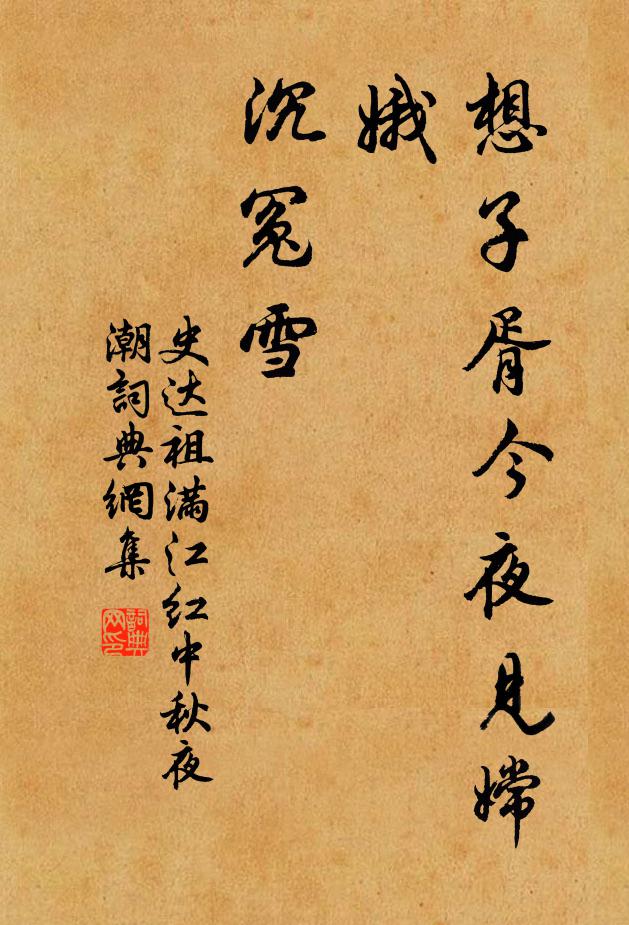 想子胥今夜见嫦
娥
沉冤雪
史达祖满江红中秋夜
潮詞典網集
詞典网印